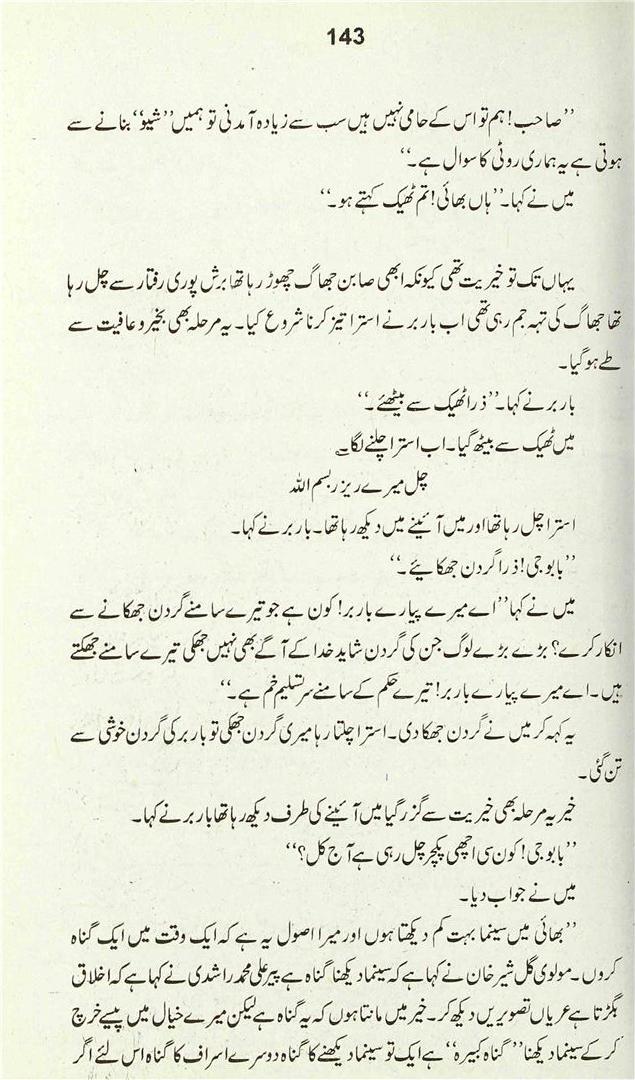 143
’’صاحب! ہم تو اس کے حامی نہیں ہیں سب سے زیادہ آمدنی تو ہمیں ’’شیو‘‘ بنانے سے
ہوتی ہے یہ ہماری روٹی کا سوال ہے۔‘‘
میں نے کہا۔ ’’ہاں بھائی! تم ٹھیک کہتے ہو۔‘‘
یہاں تک تو خیریت تھی کیونکہ ابھی صابن جھاگ چھوڑ رہا تھا برش پوری رفتار سے چل رہا
تھا جھاگ کی تہہ جم رہی تھی اب باربر نے استرا تیز کرنا شروع کیا۔ یہ مرحلہ بھی بخیر و عافیت سے
طے ہو گیا۔
باربر نے کہا۔ ’’ذرا ٹھیک سے بیٹھئے۔‘‘
میں ٹھیک سے بیٹھ گیا۔ اب استرا چلنے لگا۔
چل میرے ریزر بسم اللہ
استرا چل رہا تھا اور میں آئینے میں دیکھ رہا تھا۔ باربر نے کہا۔
’’بابو جی! ذرا گردن جھکایئے۔‘‘
میں نے کہا ’’اے میرے پیارے باربر! کون ہے جو تیرے سامنے گردن جھکانے سے
انکار کرے؟ بڑے بڑے لوگ جن کی گردن شاید خدا کے آگے بھی نہیں جھکی تیرے سامنے جھکتے
ہیں۔ اے میرے پیارے باربر! تیرے حکم کے سامنے سر تسلیم خم ہے۔‘‘
یہ کہہ کر میں نے گردن جھکا دی۔ استرا چلتا رہا میری گردن جھکی تو باربر کی گردن خوشی سے
تن گئی۔
خیر یہ مرحلہ بھی خیریت سے گزر گیا میں آئینے کی طرف دیکھ رہا تھا باربر نے کہا۔
’’بابو جی! کون سی اچھی پکچر چل رہی ہے آج کل؟‘‘
میں نے جواب دیا۔
’’بھائی میں سینما بہت کم دیکھتا ہوں اور میرا اصول یہ ہے کہ ایک وقت میں ایک گناہ
کروں۔ مولوی گل شیر خان نے کہا ہے کہ سینما دیکھنا گناہ ہے پیر علی محمد راشدی نے کہا ہے کہ اخلاق
بگڑتا ہے عریاں تصویریں دیکھ کر۔ خیر میں مانتا ہوں کہ یہ گناہ ہے لیکن میرے خیال میں پیسے خرچ
کر کے سینما دیکھنا ’’گناہ کبیرہ‘‘ ہے ایک تو سینما دیکھنے کا گناہ دوسرے اسراف کا گناہ اس لئے اگر